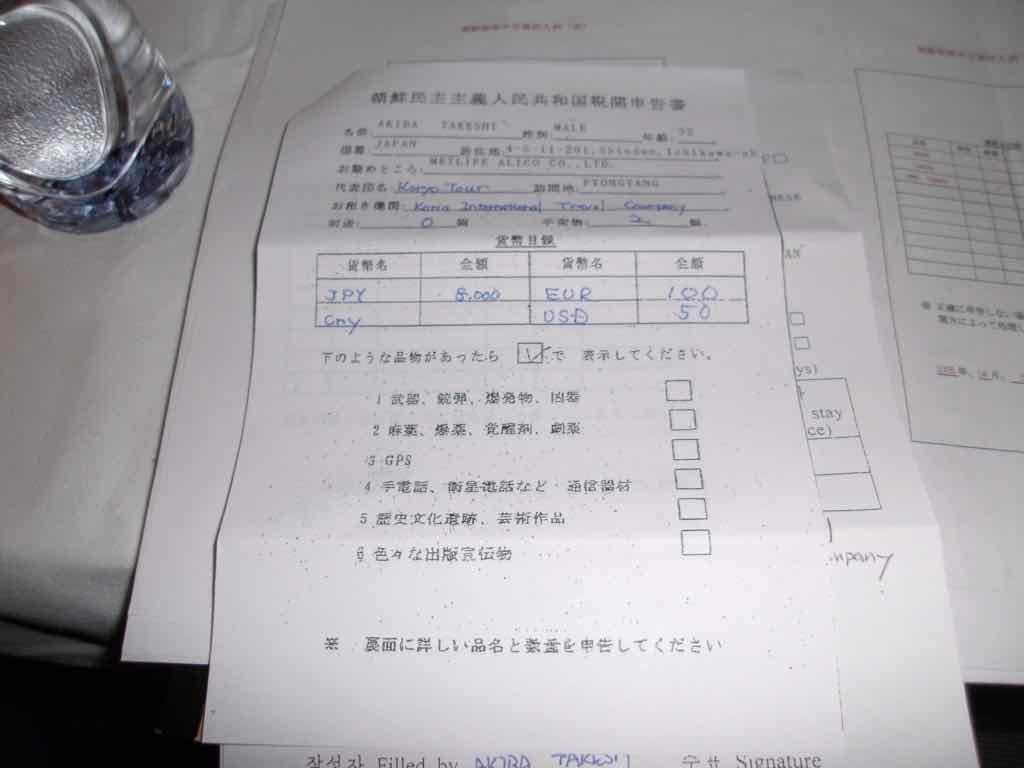 朝鮮民主主義人民共和国税関申告書
名前 AKIBA TAKESHI 性別 MALE 年齢 32
国籍 JAPAN 居住地 4-6-11-201, Shinden, Ichikawa-sh
お勤めところ: METLIFE ALICO CO., LTD.
代表団名: Koryo Tour 訪問地: PYONGYANG
お招き機関: Korea International Travel Company
別送: 0 個 手荷物: 2 個
貨幣目録
貨幣名 金額 貨幣名 金額
JPY 8,000 EUR 100
Cny USD 50
下のような品物があったら で 表示してください。
1 武器、銃弾、爆発物、凶器
2 麻薬、爆薬、覚醒剤、劇薬
3 GPS
4 手電話、衛星電話など 通信器材
5 歴史文化遺跡、芸術作品
6 色々な出版宣伝物
※ 裏面に詳しい品名と数量を申告してください
작성자 Filled by AKIBA 수표 Signature
AN
ys)
stay
ce)
mpany